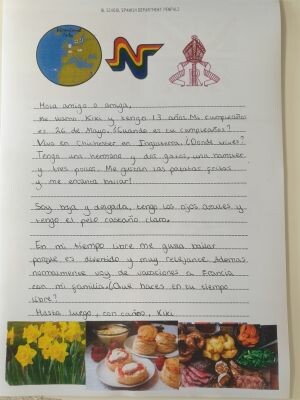 SCHOOL SPANISH DEPARTMENT PENPALS
Hola amigo o amiga,
Me llamo Kiki y tengo 13 años. Mi cumpleaños
es 26 de Mayo. ¿Cuando es tu cumpleaños?
Vivo en Chichester en Inglaterra. ¿Donde vives?
Tengo una hermana y dos gatos, una hamster
y tres pollos. Me gustan las patatas fritas
y me encanta bailar!
Soy baja y delgada, tengo los ojos azules y
tengo el pelo castaño claro.
En mi tiempo libre me gusta bailar
porque es divertido y muy relajante. Ademas
normalmente voy de vacaciones a Francia
con mi familia. ¿Que haces en tu tiempo
libre?
Hasta luego, con cariño, Kiki